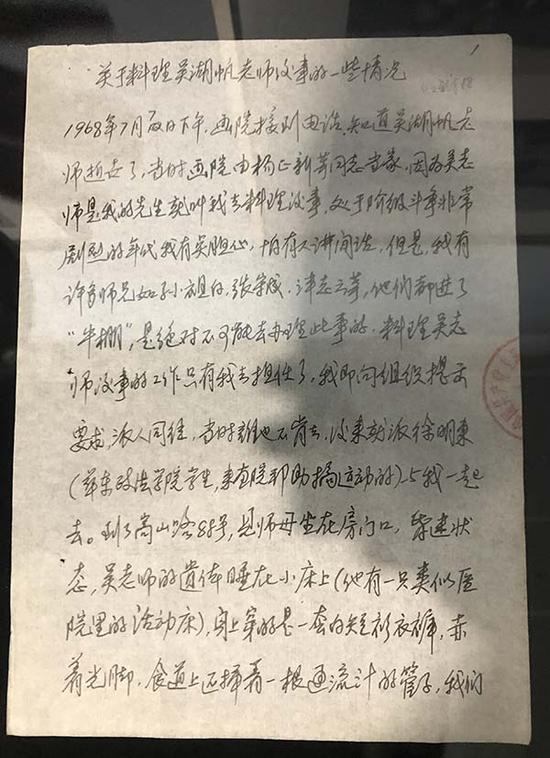 1
关于料理吴湖帆老师后事的一些情况
1968年7月 日下午,画院接到电话,知道吴湖帆老
师逝去了,当时画院由杨正新等同志当家,因为吴老
师是我的先生就叫我去料理后事,处于阶级斗争非常
剧烈的年代我有些担心,怕有不讲闲话,但是,我有
许多师兄如孙祖白、张守成、津志云等,他们都进了
“牛棚”,是绝对不可能去办理此事的,料理吴老
师后事的工作只有我去担任了,我即向组织提出
要求,派人同往,当时谁也不肯去,后来就派徐明东
(华东政法学院学生,来画院帮助搞运动的)与我一起
去。到了嵩山路88号,见师母坐在房门口,呆状
态,吴老师的遗体睡在小床上(他有一只类似医
院里的活动床),身上穿的是一套白短衫衣裤,赤
着光脚,食道上还插着一根通流汁的管子,我们